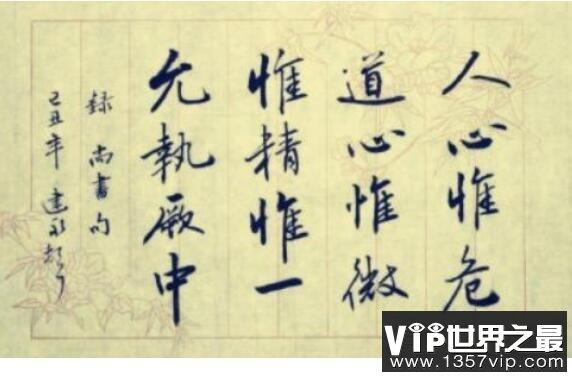 人心惟危
道心惟微
惟精惟一
允執厥中
錄尚書句
己丑年建永
VIP世界之最
www.1357vip.com